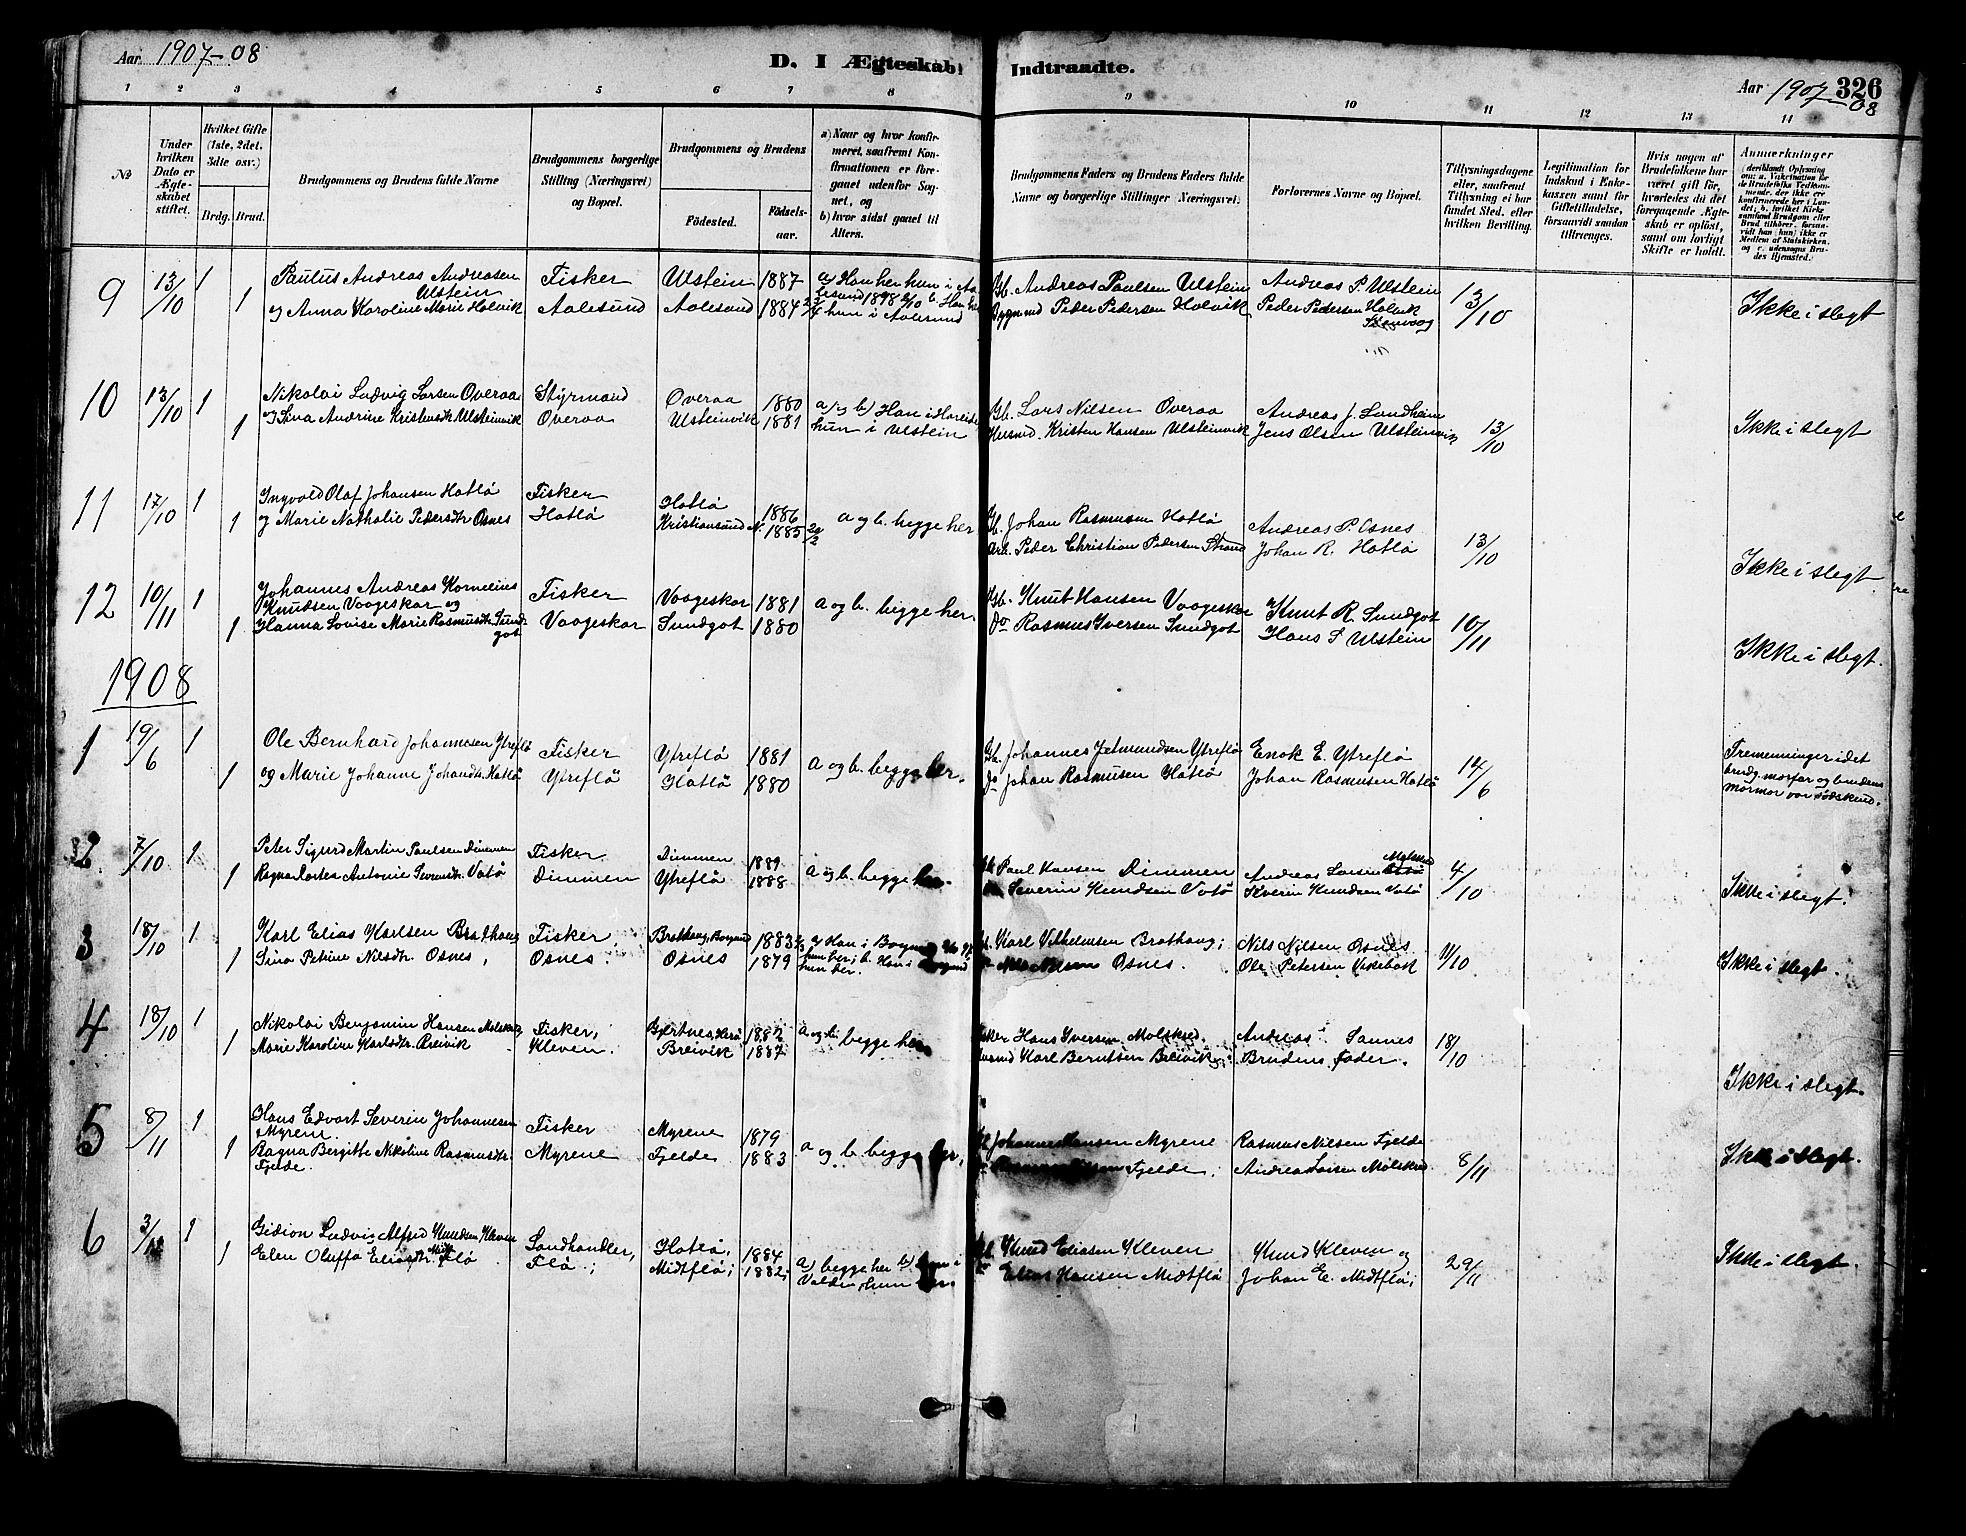 Aar 1907-08
D. I Ægteskab Indtraadte.
Aar 1907-08
326
1 2 3 4 5 6 7 8 9 10 11 12 13 14
№
Under hvilken Dato er Ægteskabet stiftet.
Hvilket Gifte (1ste, 2det, 3dte osv.)
Brdg. Brud.
Brudgommens og Brudens fulde Navne
Brudgommens borgerlige Stilling (Næringsvei) og Bopæl.
Brudgommens og Brudens
Fødested.
Fødselsaar.
a) Naar og hvor konfirmeret, saafremt Konfirmationen er foregaaet udenfor Sognet, og
b) hvor sidst gaaet til Alters.
Brudgommens Faders og Brudens Faders fulde Navne og borgerlige Stillinger (Næringsvei).
Forlovernes Navne og Bopæl.
Tillysningsdagene eller, saafremt Tillysning ei har fundet Sted, efter hvilken Bevilling.
Legitimation for Indskud i Enkekassen samt for Giftetilladelse, forsaavidt saadan tiltrænges.
Hvis nogen af Brudefolkene har været gift før, hvorledes da det foregaaende Ægteskab er opløst, samt om lovligt Skifte er holdt.
Anmærkninger
(deriblandt Oplysning om: a. Vakcination for de Brudefolks Vedkommende, der ikke er konfirmerede her i Landet; b. hvilket Kirkesamfund Brudgom eller Brud tilhører, forsaavidt han (hun) ikke er Medlem af Statskirken, og c. udensogns Brudes Hjemsted.)
9 13/10 1 Paulus Andreas Andreasen Ulstein Fisker Ulstein 1887 a Han her hun i Aalesund 1898 Gb. Andreas Paulsen Ulstein Andreas P. Ulstein 13/10
1 og Anna Karoline Marie Holvik Aalesund Aalesund 1884 hun i Aalesund Peder Pedersen Holvik Peder Pedersen Holvik Ikke i slegt
10 13/10 1 Nikolai Ludvig Larsen Overaa Styrmand Overaa 1880 a) og b) Han i Hareide Gb. Lars Nilsen Overaa Andreas J. Sundheim 13/10
1 og Sina Andrine Kristensdtr Ulsteinvik Overaa Ulsteinvik 1881 hun i Ulstein Husmd. Kristen Hansen Ulsteinvik Jens Olsen Ulsteinvik Ikke i slegt
11 17/10 1 Ingvald Olaf Johansen Hatlø Fisker Hatlø 1886 a og b. begge her Gb. Johan Rasmusen Hatlø Andreas P. Osnes 13/10
1 og Marie Nathalie Pedersdtr Osnes Hatlø Kristiansund N. 1885 29/2 Arb. Peder Christian Pedersen Strand Johan R. Hatlø Ikke i slegt
12 10/11 1 Johannes Andreas Kornelius Knudsen Vaageskar og Fisker Vaageskar 1881 a og b. begge her. Gb. Knut Hansen Vaageskar Knut R. Sundgot 10/11
1 Hanna Lovise Marie Rasmusdtr. Sundgot Vaageskar Sundgot 1880 do Rasmus Iversen Sundgot Hans S Ulstein Ikke i slegt.
1908
1 19/6 1 Ole Bernhard Johannesen Ytreflø Fisker Ytreflø 1881 a og b. begge her. Gb. Johannes Jetmundsen Ytreflø Enok E. Ytreflø 14/6
1 og Marie Johanne Johansdtr. Hatlø Ytreflø Hatlø 1880 do Johan Rasmusen Hatlø Johan Rasmusen Hatlø Tremenninger idet brudg. morfar og brudens mormor var sødskend.
2 7/10 1 Peter Sigurd Martin Paulsen Dimmen Fisker Dimmen 1889 a og b. begge her. Paul Hansen Dimmen Andreas Larsen Molsknd 4/10
1 Ragna Dortea Antonie Severinsdtr. Vatø Dimmen Ytreflø 1888 Severin Knudsen Vatø Severin Knudsen Vatø Ikke i slegt.
3 18/10 1 Karl Elias Karlsen Brathaug Fisker Brathaug, Borgund 1883 a Han i Borgund Karl Vilhelmsen Brathaug; Nils Nilsen Osnes 11/10
1 Sina Petrine Nilsdtr. Osnes, Osnes. Osnes 1879 hun her; b. Han i Borgund hun her. Nils Nilsen Osnes. Ole Petersen Vikebak Ikke i slegt.
4 18/10 1 Nikolai Benjamin Hansen Molsknd Fisker, Gjertnes, Herø 1882 a og b. begge her Hans Iversen Molsknd Andreas Sannes 18/10
1 Marie Karoline Karlsdtr. Breivik Kleven. Breivik 1887 Karl Berntsen Breivik; Brudens fader. Ikke i slegt.
5 8/11 1 Hans Edvart Severin Johannesen Myrene Fisker Myrene 1879 a og b. begge her, Johannes Hansen Myrene Rasmus Nilsen Fjelde
1 Ragna Bergitte Nikoline Rasmusdtr. Fjelde. Myrene Fjelde 1883 Rasmus Nilsen Fjelde; Andreas Larsen Molsknd 8/11 Ikke i slegt.
6 3/12 1 Gidion Ludvig Alfred Knudsen Kleven Landhandler, Hatlø, 1884 a) begge her b) ham i Gb. Knud Eliasen Kleven Knud Kleven og 29/11
1 Elen Oluffa Eliasdtr. Midtflø Flø; Midtflø; 1882; Volden, hun her do Elias Hansen Midtflø Johan E. Midtflø; Ikke i slegt.